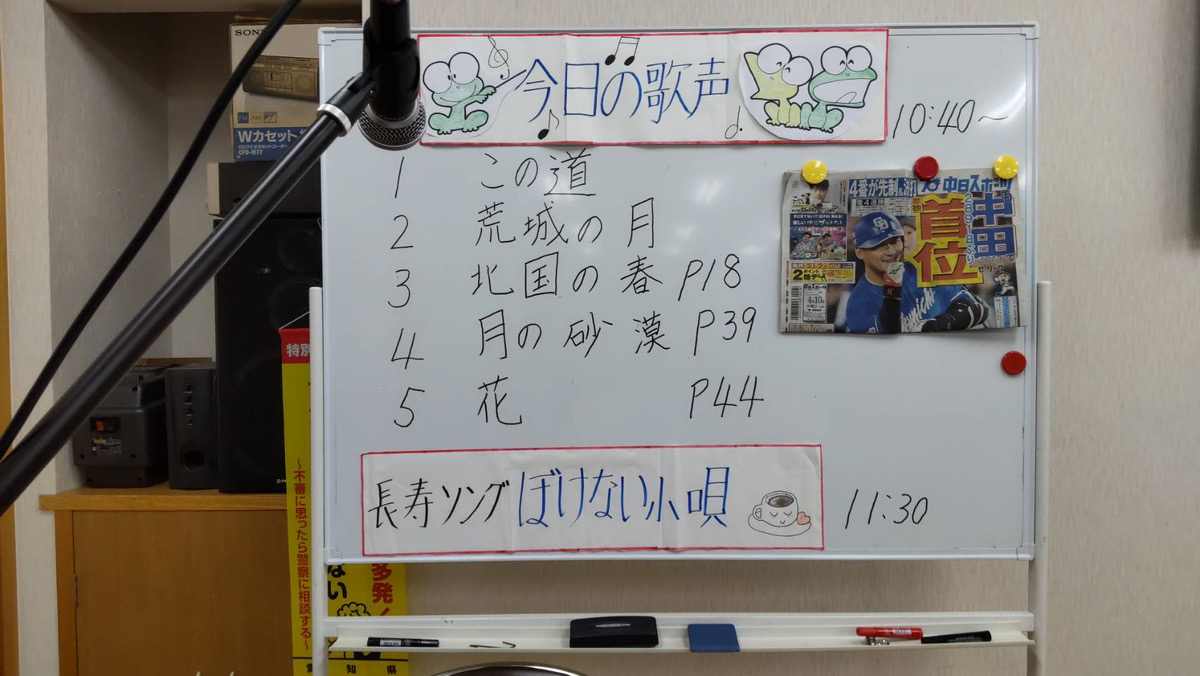 今日の歌声
10:40～
1 この道
2 荒城の月
3 北国の春 P18
4 月の砂漠 P39
5 花 P44
長寿ソング ぼけない小唄
11:30
中日スポーツ
4番が先制&
中田
首位
4月10日
SONY
FM AM
Wカセット
CFD-W77
特別
～不審に思ったら警察に相談する～
多発！
ない
愛知県